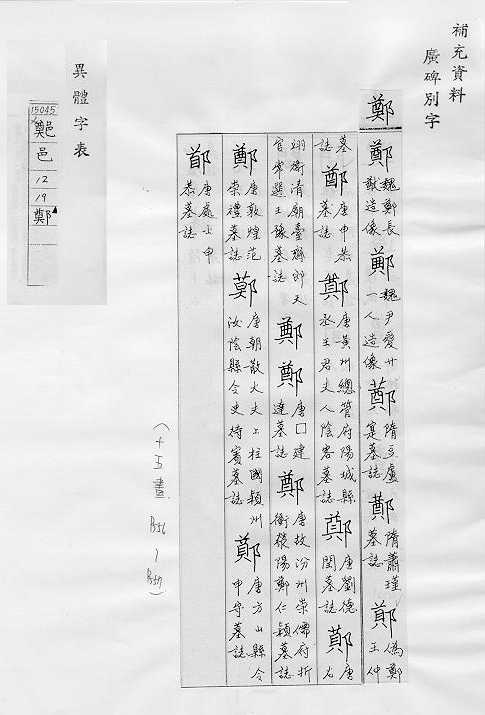 補充資料
廣碑別字
鄭
鄭 魏鄭長猷造像 鄭 魏尹愛廿一人造像 鄭 隋豆盧寔墓誌 鄭 隋蕭瑾墓誌 鄭 偽鄭王仲
墓誌 鄭 唐申恭墓誌 鄭 唐黃州總管府陽城縣丞王君夫人陰容墓誌 鄭 唐劉德閏墓誌 鄭 唐右
翊衛清廟臺齋郎天官常選王豫墓誌 鄭 鄭 唐囗建達墓誌 鄭 唐故汾州崇儒府折衝滎陽鄭仁穎墓誌
鄭 唐敦煌范崇禮墓誌 鄭 唐朝散大夫上柱國潁州汝陰縣令史待賓墓誌 鄭 唐方山縣令申守墓誌
鄭 唐處士申恭墓誌
異體字表
15045
邑
12
19
鄭
(十五畫